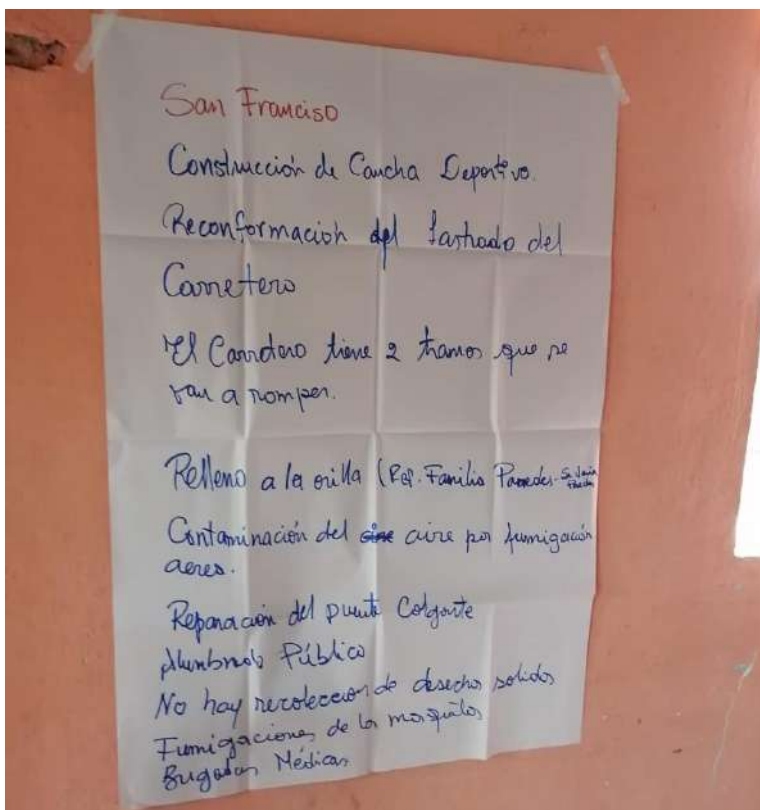 San Franciso
Construcción de Cancha Deportivo.
Reconformación del lastrado del
Carretero
El Carretero tiene 2 tramos que se
van a romper.
Relleno a la orilla (Ref. Familia Paredes -
Contaminación del aire por fumigación
aerea.
Reparación del puente Colgante
Alumbrado Público
No hay recoleccion de desechos solidos
Fumigaciones de los mosquitos
Brigadas Médicas